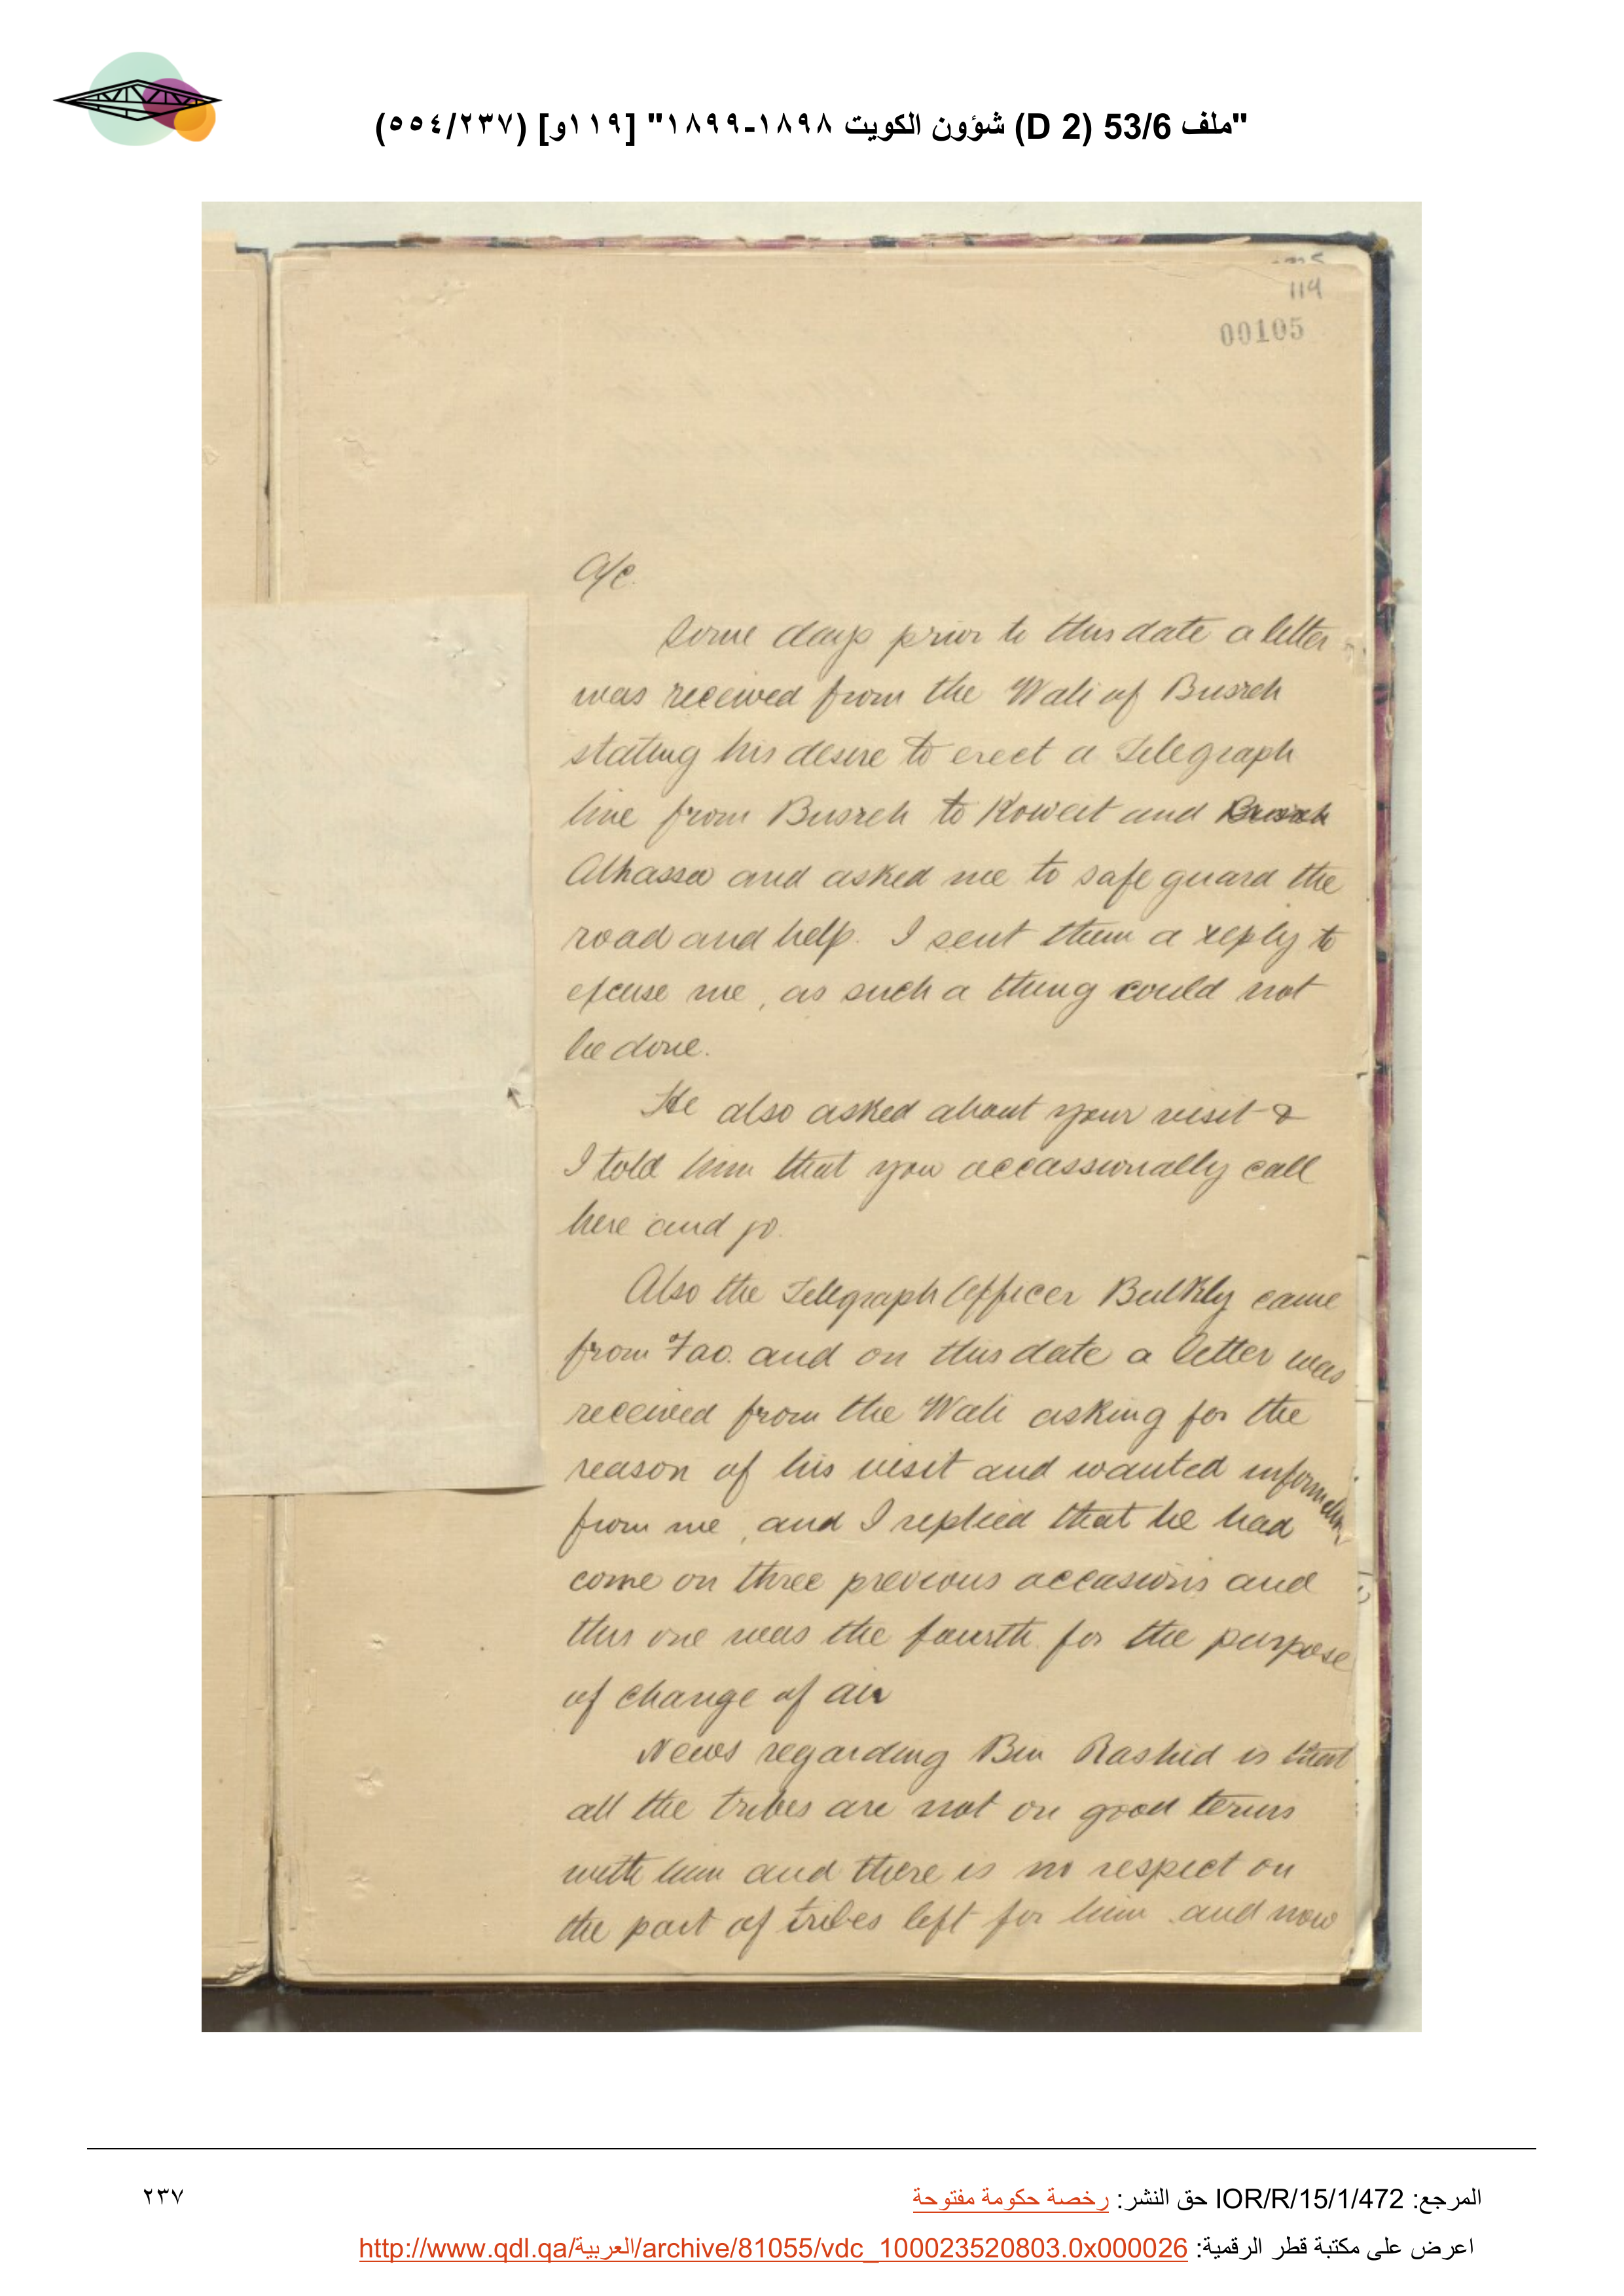 "ملف 53/6 (D 2) شؤون الكويت ١٨٩٨-١٨٩٩" [١١٩و] (٢٣٧/٥٥٤)
119
00105
A/C.
Some days prior to this date a letter
was received from the Wali of Busreh
stating his desire to erect a Telegraph
line from Busreh to Koweit and
Alhassa and asked me to safe guard the
road and help. I sent them a reply to
excuse me, as such a thing could not
be done.
He also asked about your visit &
I told him that you occassionally call
here and go.
Also the Telegraph Officer Bulkly came
from Fao. and on this date a letter was
received from the Wali asking for the
reason of his visit and wanted information
from me, and I replied that he had
come on three previous occasions and
this one was the fourth for the purpose
of change of air
News regarding Bin Rashid is that
all the tribes are not on good terms
with him and there is no respect on
the part of tribes left for him and now
المرجع: IOR/R/15/1/472 حق النشر: رخصة حكومة مفتوحة
٢٣٧
اعرض على مكتبة قطر الرقمية: http://www.qdl.qa/العربية/archive/81055/vdc_100023520803.0x000026